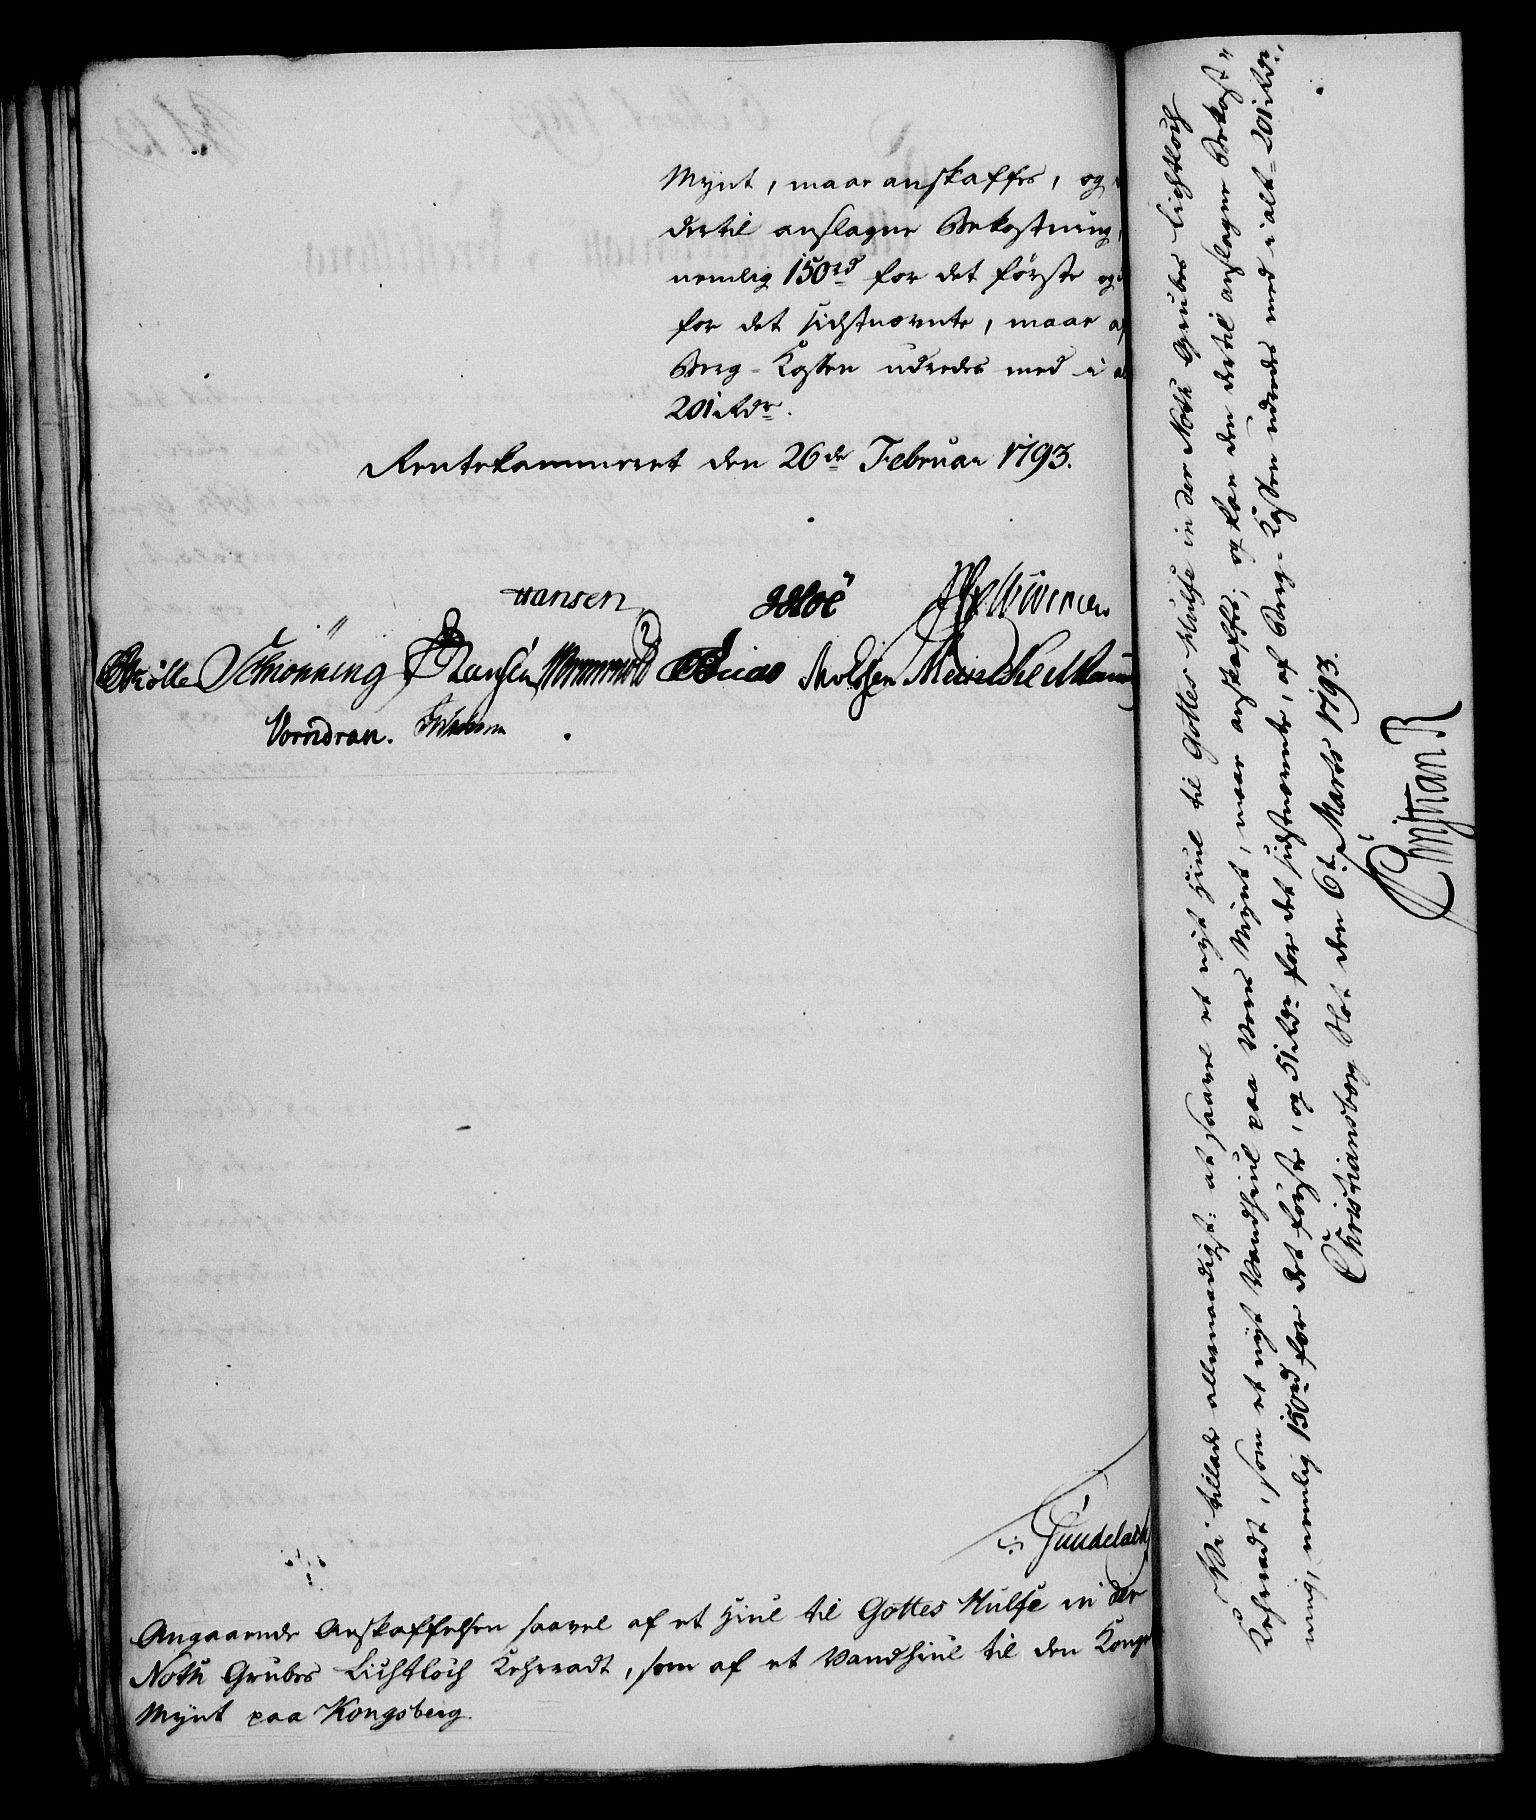 Mÿnt, maae anskaffes, og
dertil anslagne Bekostning,
nemlig 150rd for det förste og
for det sidstnævnte, maae af
Berg-Kassen udredes med i al
201 Rdr.
Rentekammeret den 26de Februar 1793.
Hansen
Schionning
Vorndran.
Gundelach
Angaaende Anskaffelsen saavel af et Hiul til Gottes Hülfe in der
Noth Grubes Lichtloch Kehrradt, som af et Vandhiul til den Konge
Mÿnt paa Kongsberg.
Vi tillade allernaadigst: at saavel et nyt Hiul til Gottes Hülfe in der Noth Grubes Lichtloch
Kehrradt, som et nyt Vandhiul paa Vores Mÿnt, maae anskaffes, og kan den dertil anslagne Bekost-
ning, nemlig 150rd for det förste, og 51 Rdr for det sidstnævnte, af Berg-Kassen udredes med i alt 201 Rdr.
Christiansborg Slot den 6t Marts 1793.
Christian R